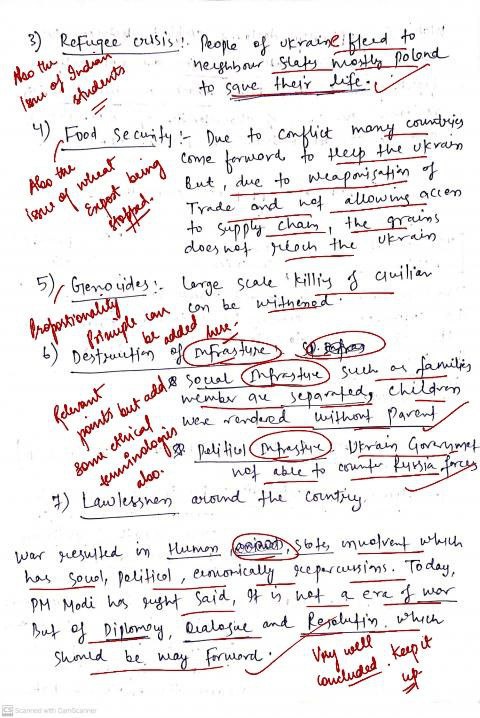 3) Refugee crisis :- People of ukraine fleed to
neighbour states mostly poland
to save their life.
Also the
issue of Indian
students
4) Food Security :- Due to conflict many countries
come forward to Help the Ukrain
But, due to weaponisation of
Trade and not allowing access
to supply chain, the grains
does not reach the ukrain
Also the
issue of wheat
Export being
stopped.
5) Genocides :- Large scale killing of civilian
can be withered.
Proportionality
Principle can
be added here.
6) Destruction of Infrasture
social Infrasture such as families
member are separated, children
were rendered without Parent
Political Infrasture. Ukrain Government
not able to counter Russia forces
Relevant
points but add
some ethical
terminologies
also.
7) Lawlessness around the country
War resulted in Human, States involvent which
has socal, political, economically repercussions. Today,
PM Modi has right said, It is not a era of war
But of Diplomacy, Dialogue and Resolution which
should be way forward.
Very well
concluded. Keep it
up
CS Scanned with CamScanner